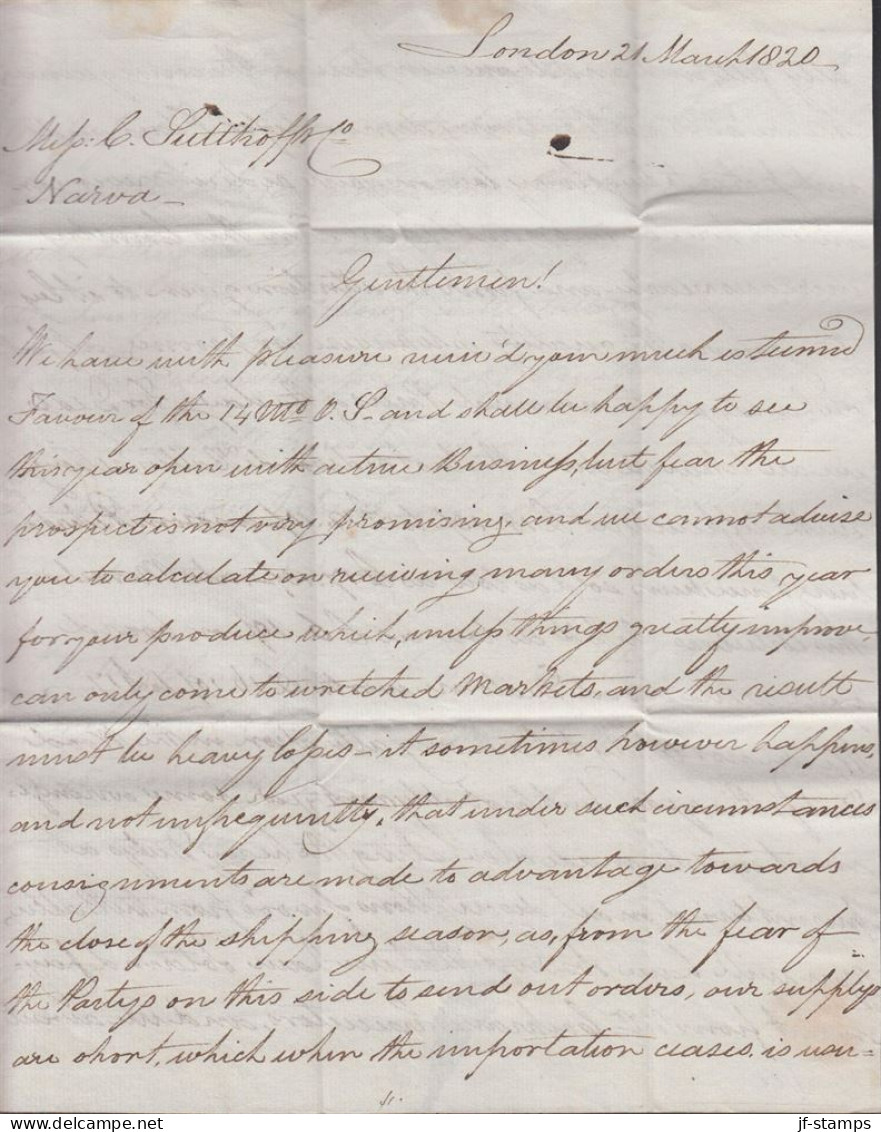 London 21 March 1820
Mess: C. Sutthoff & Co
Narva —
Gentlemen!
We have with pleasure receiv'd your much esteemed
Favour of the 14 Ulto O. S. and shall be happy to see
this year open with active Business, but fear the
prospect is not very promising, and we cannot advise
you to calculate on receiving many orders this year
for your produce which, unless things greatly improve
can only come to wretched Markets, and the result
must be heavy losses — it sometimes however happens,
and not unfrequently, that under such circumstances
consignments are made to advantage towards
the close of the shipping season, as, from the fear of
the Partys on this side to send out orders, our supplys
are short, which when the importation ceases, is usu=
Delcampe.net
jf-stamps